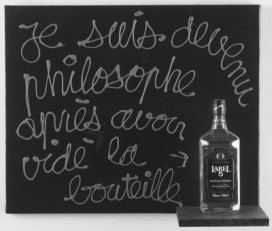 Je suis devenu
philosophe
après avoir
vidé la
bouteille
LABEL
5